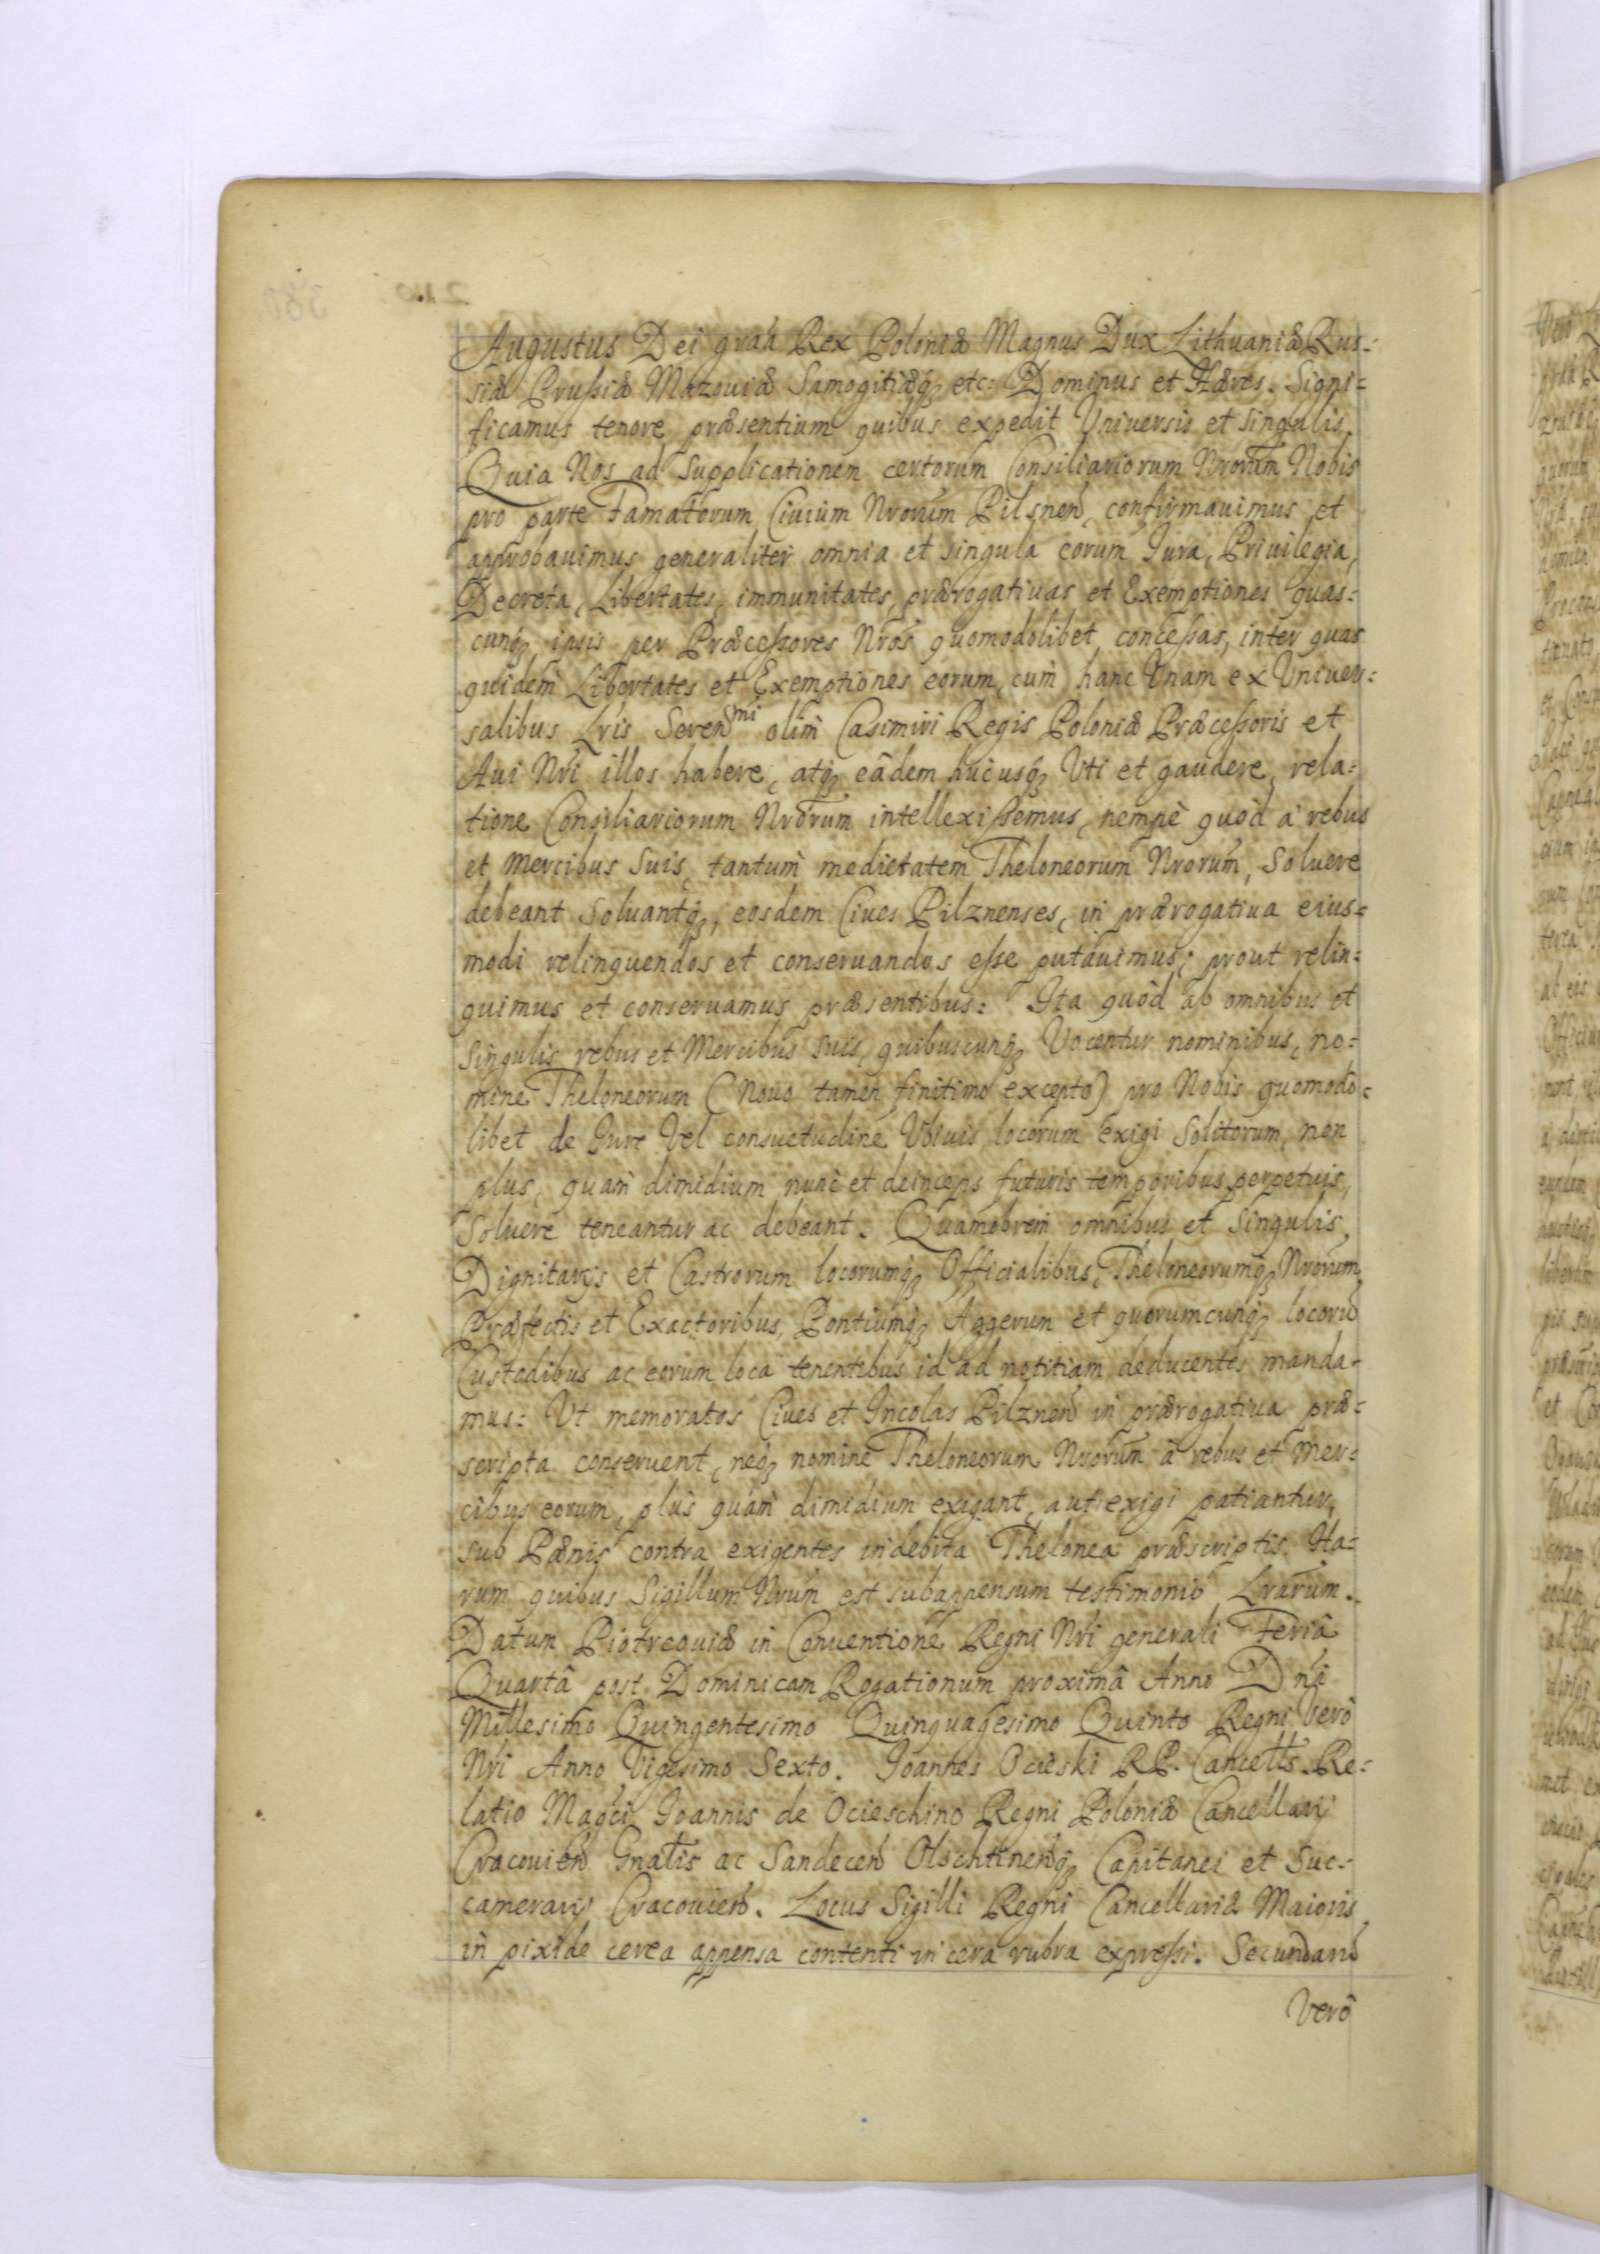 Augustus Dei gratia Rex Poloniæ Magnus Dux Lithuaniæ Rus=
siæ Prussiæ Mazouiæ Samogitiæq; etc: Dominus et Hæres. Signi=
ficamus tenore præsentium quibus expedit Vniversis et singulis.
Quia Nos ad supplicationem certorum Consiliariorum Nrorum Nobis
pro parte Famatorum Ciuium Nrorum Pilsnen, confirmauimus et
approbauimus generaliter omnia et singula eorum Jura, Priuilegia,
Decreta, Libertates, immunitates, prærogatiuas et Exemptiones quas=
cunq; ipsis per Præcessores Nros quomodolibet concessas, inter quas
quidem Libertates et Exemptiones eorum, cum hanc Vnam ex Vniver=
salibus Lris Seren^mi olim Casimiri Regis Poloniæ Præcessoris et
Aui Nri illos habere, atq; eâdem hucusq; Vti et gaudere, rela=
tione Consiliariorum Nrorum intellexissemus, nempè quòd à rebus
et Mercibus Suis, tantùm medietatem Theloneorum Nrorum, Soluere
debeant Soluantq;, eosdem Ciues Pilznenses, in prærogatiua eius=
modi relinquendos et conseruandos esse putauimus; prout relin=
quimus et conseruamus præsentibus: Ita quòd ab omnibus et
Singulis rebus et Mercibus suis, quibuscunq; Vocentur nominibus, no=
mine Theloneorum (Nouo tamen finitimo excepto) pro Nobis quomodo=
libet de Jure Vel consuetudine Vbiuis locorum exigi Solitorum, non
plus, quàm dimidium nunc et deinceps futuris temporibus perpetuis,
Soluere teneantur ac debeant. Quamobrem omnibus et Singulis
Dignitarijs et Castrorum locorumq; Officialibus, Theloneorumq; Nrorum
Præfectis et Exactoribus, Pontiumq; Aggerum et quorumcunq; locorū
Custodibus ac eorum loca tenentibus id ad notitiam deducentes manda=
mus: Vt memoratos Ciues et Incolas Pilznen in prærogatiua præ=
scripta conseruent, neq; nomine Theloneorum Nrorum à rebus et Mer=
cibus eorum, plus quàm dimidium exigant, aut exigi patiantur,
sub Pœnis contra exigentes indebita Thelonea præscriptis. Ha=
rum quibus Sigillum Nrum est subappensum testimonio Lrarum.
Datum Piotrcouiæ in Conuentione Regni Nri generali Feriâ
Quartâ post Dominicam Rogationum proximâ Anno Dni
Millesimo Quingentesimo Quinquagesimo Quinto Regni Verò
Nri Anno Vigesimo Sexto. Joannes Ocieski RP. Cancells. Re=
latio Magci Joannis de Ocieschino Regni Poloniæ Cancellarij
Cracouien Gnalis ac Sandecen Olschtinenq; Capitanei et Suc=
camerarij Cracouien. Locus Sigilli Regni Cancellariæ Maioris
in pixide cerea appensa contenti in cera rubra expressi. Secundarū
Verò